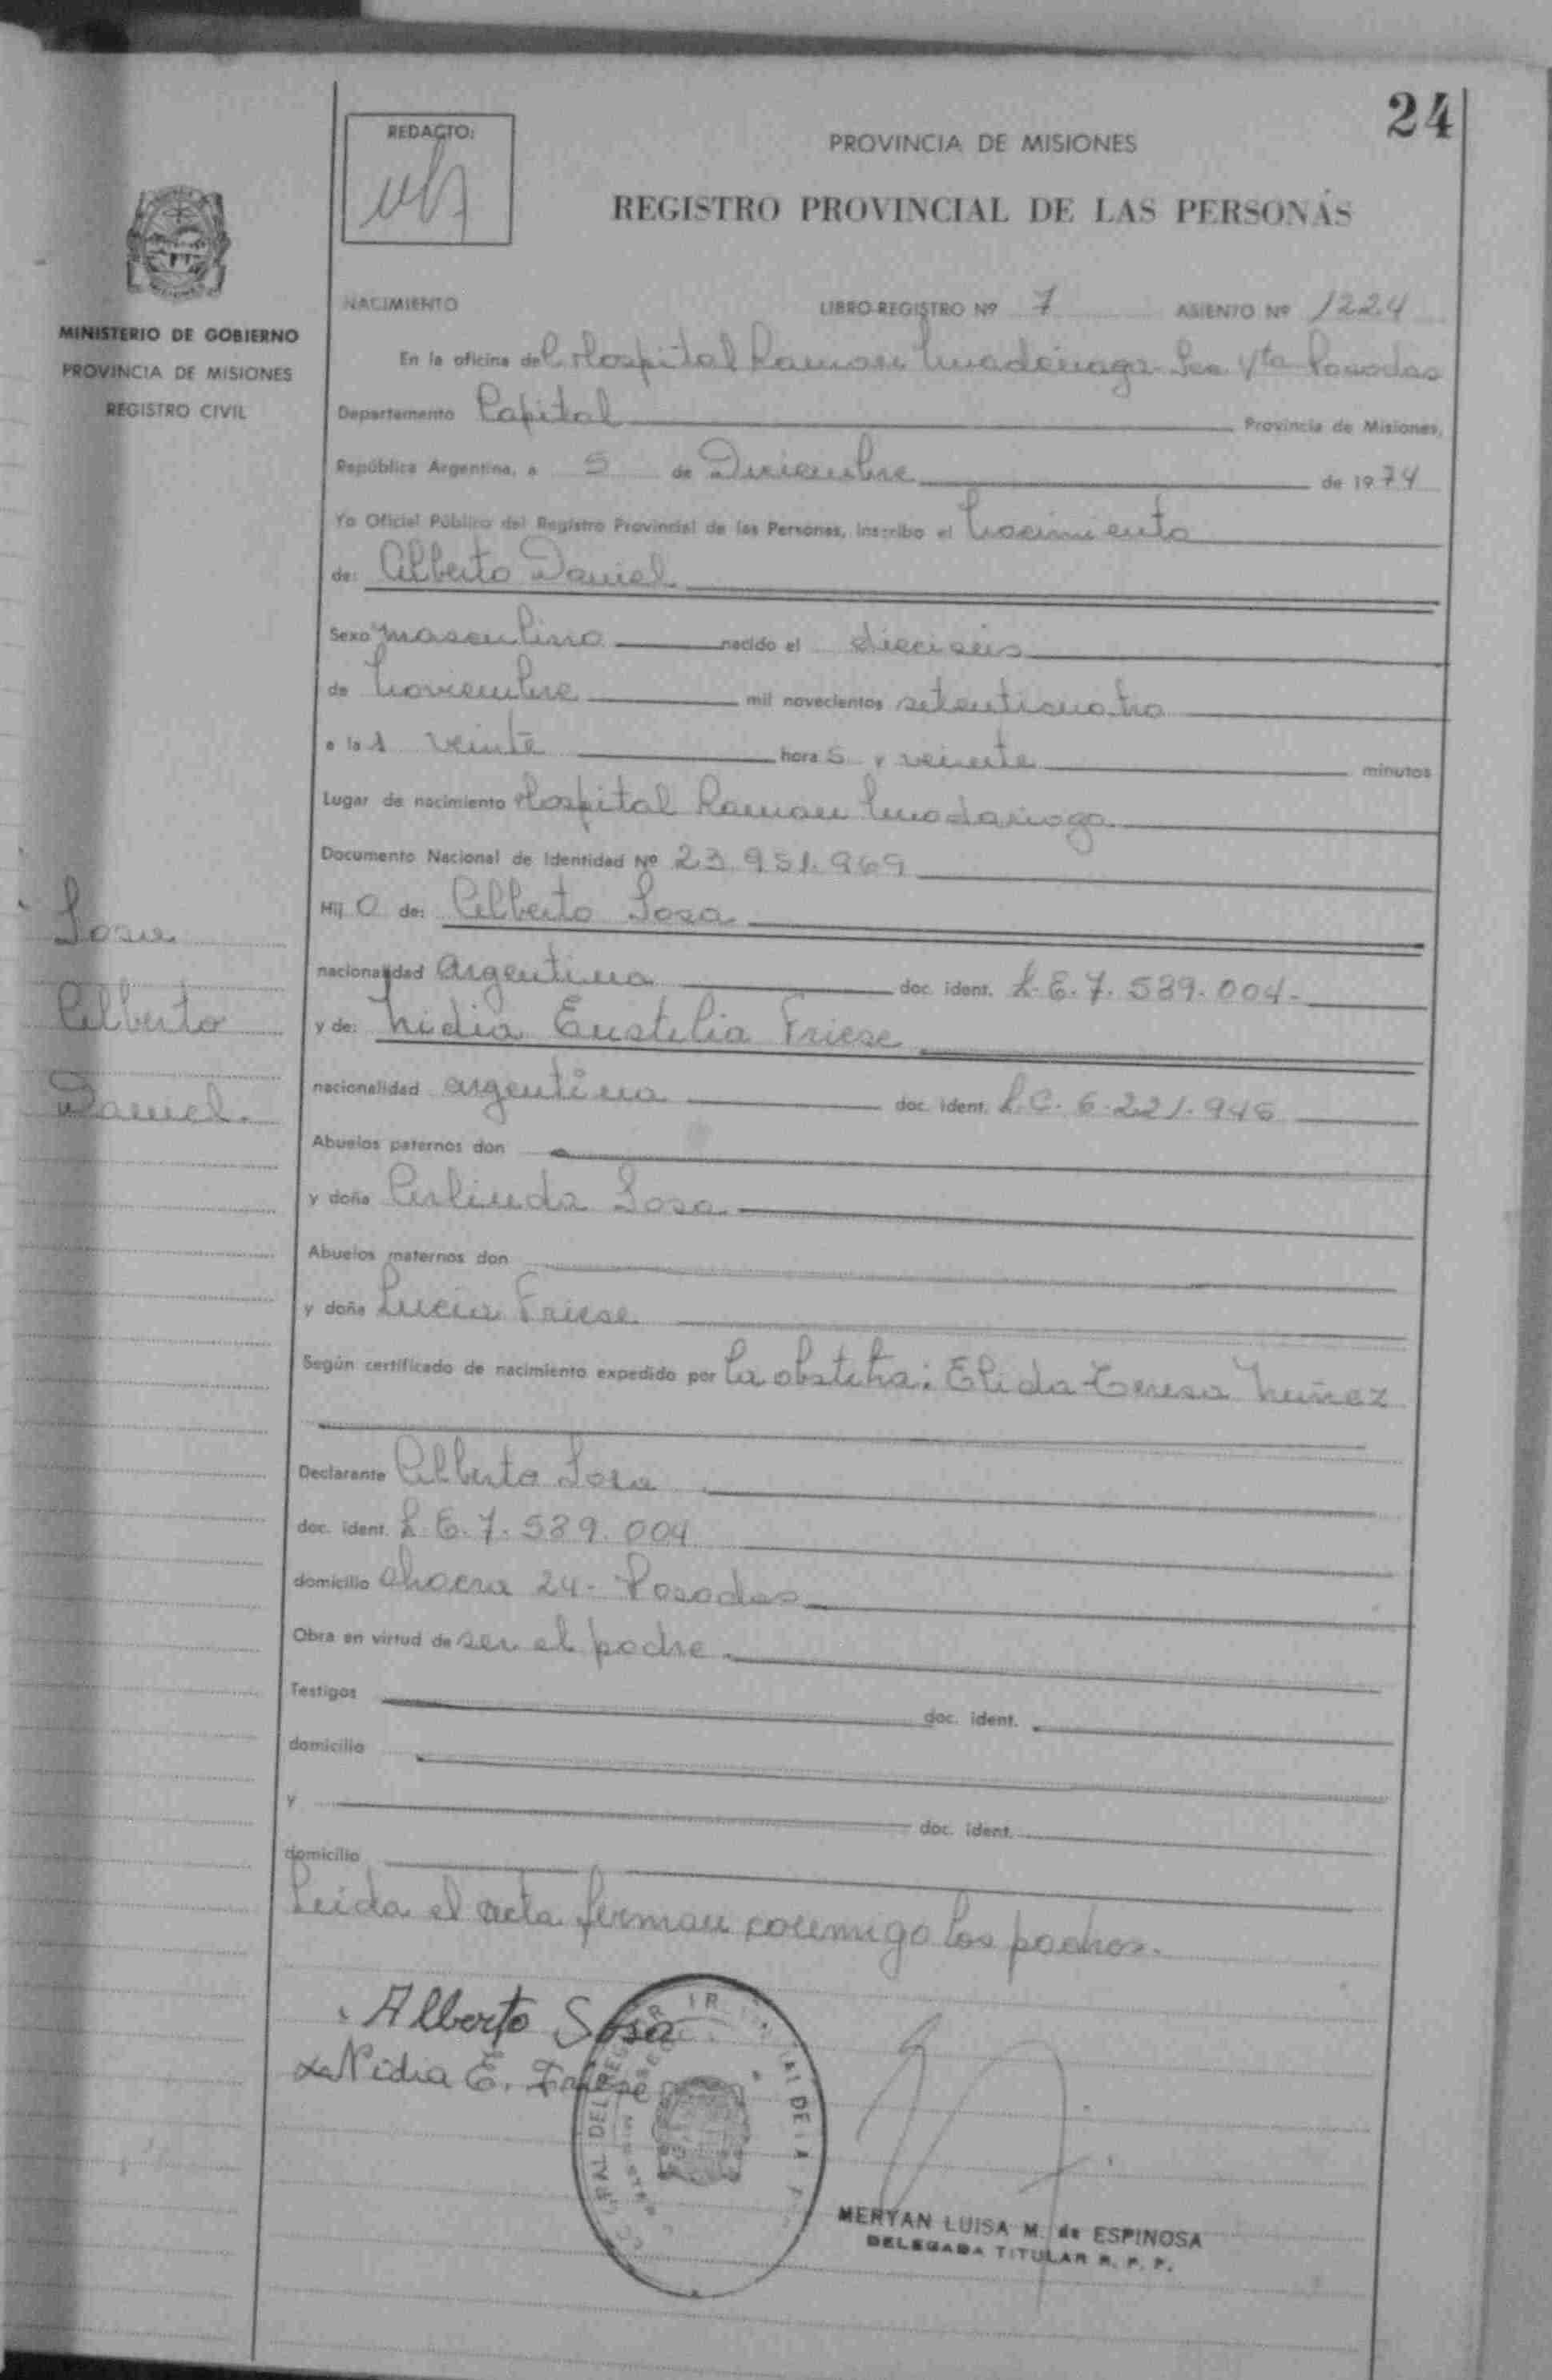 24
REDACTO:
PROVINCIA DE MISIONES
REGISTRO PROVINCIAL DE LAS PERSONAS
MINISTERIO DE GOBIERNO
PROVINCIA DE MISIONES
REGISTRO CIVIL
NACIMIENTO LIBRO-REGISTRO Nº 7 ASIENTO Nº 1224
En la oficina del Hospital Ramon Madariaga Sec Vta Posadas
Departamento Capital Provincia de Misiones,
República Argentina, a 5 de Diciembre de 1974
Yo Oficial Público del Registro Provincial de las Personas, inscribo el Nacimiento
de: Alberto Daniel
Sexo masculino nacido el dieciseis
de Noviembre mil novecientos setenticuatro
a las veinte horas y veinte minutos
Lugar de nacimiento Hospital Ramon Madariaga
Documento Nacional de Identidad Nº 23.951.969
Hijo de: Alberto Sosa
nacionalidad argentina doc. ident. L.E. 7.539.004-
y de: Nidia Eustelia Friese
nacionalidad argentina doc. ident. L.C. 6.221.946
Abuelos paternos don
y doña Arlinda Sosa
Abuelos maternos don
y doña Lucia Friese
Según certificado de nacimiento expedido por La obstetra: Elida Teresa Nuñez
Declarante Alberto Sosa
doc. ident. L.E. 7.539.004
domicilio chacra 24- Posadas
Obra en virtud de ser el padre
Testigos doc. ident.
domicilio
y doc. ident.
domicilio
Leida el acta firman conmigo los padres.
Sosa
Alberto
Daniel.
Alberto Sosa
Nidia E. Friese
MERYAN LUISA M. de ESPINOSA
DELEGADA TITULAR R. P. P.